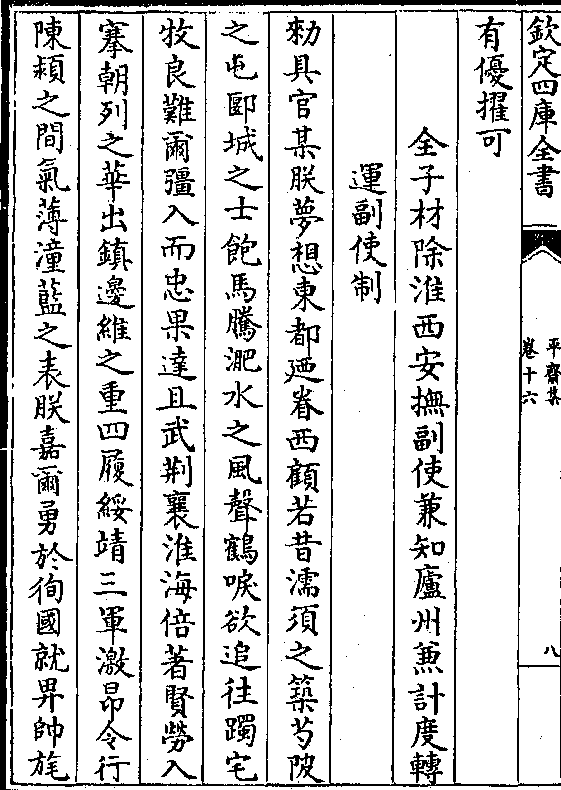 欽定四庫全書
平齋集
卷十六
八
有優擢可
全子材除淮西安撫副使兼知廬州兼計度轉
運副使制
勑具官某朕夢想東都廼眷西顧若昔濡須之築芍陂
之屯郾城之士飽馬騰淝水之風聲鶴唳欲追往躅宅
牧良難爾彊入而忠果達且武荆襄淮海倍著賢勞入
搴朝列之華出鎮邊維之重四履綏靖三軍激昻令行
陳頴之間氣薄潼藍之表朕嘉爾勇於徇國就畀帥旄